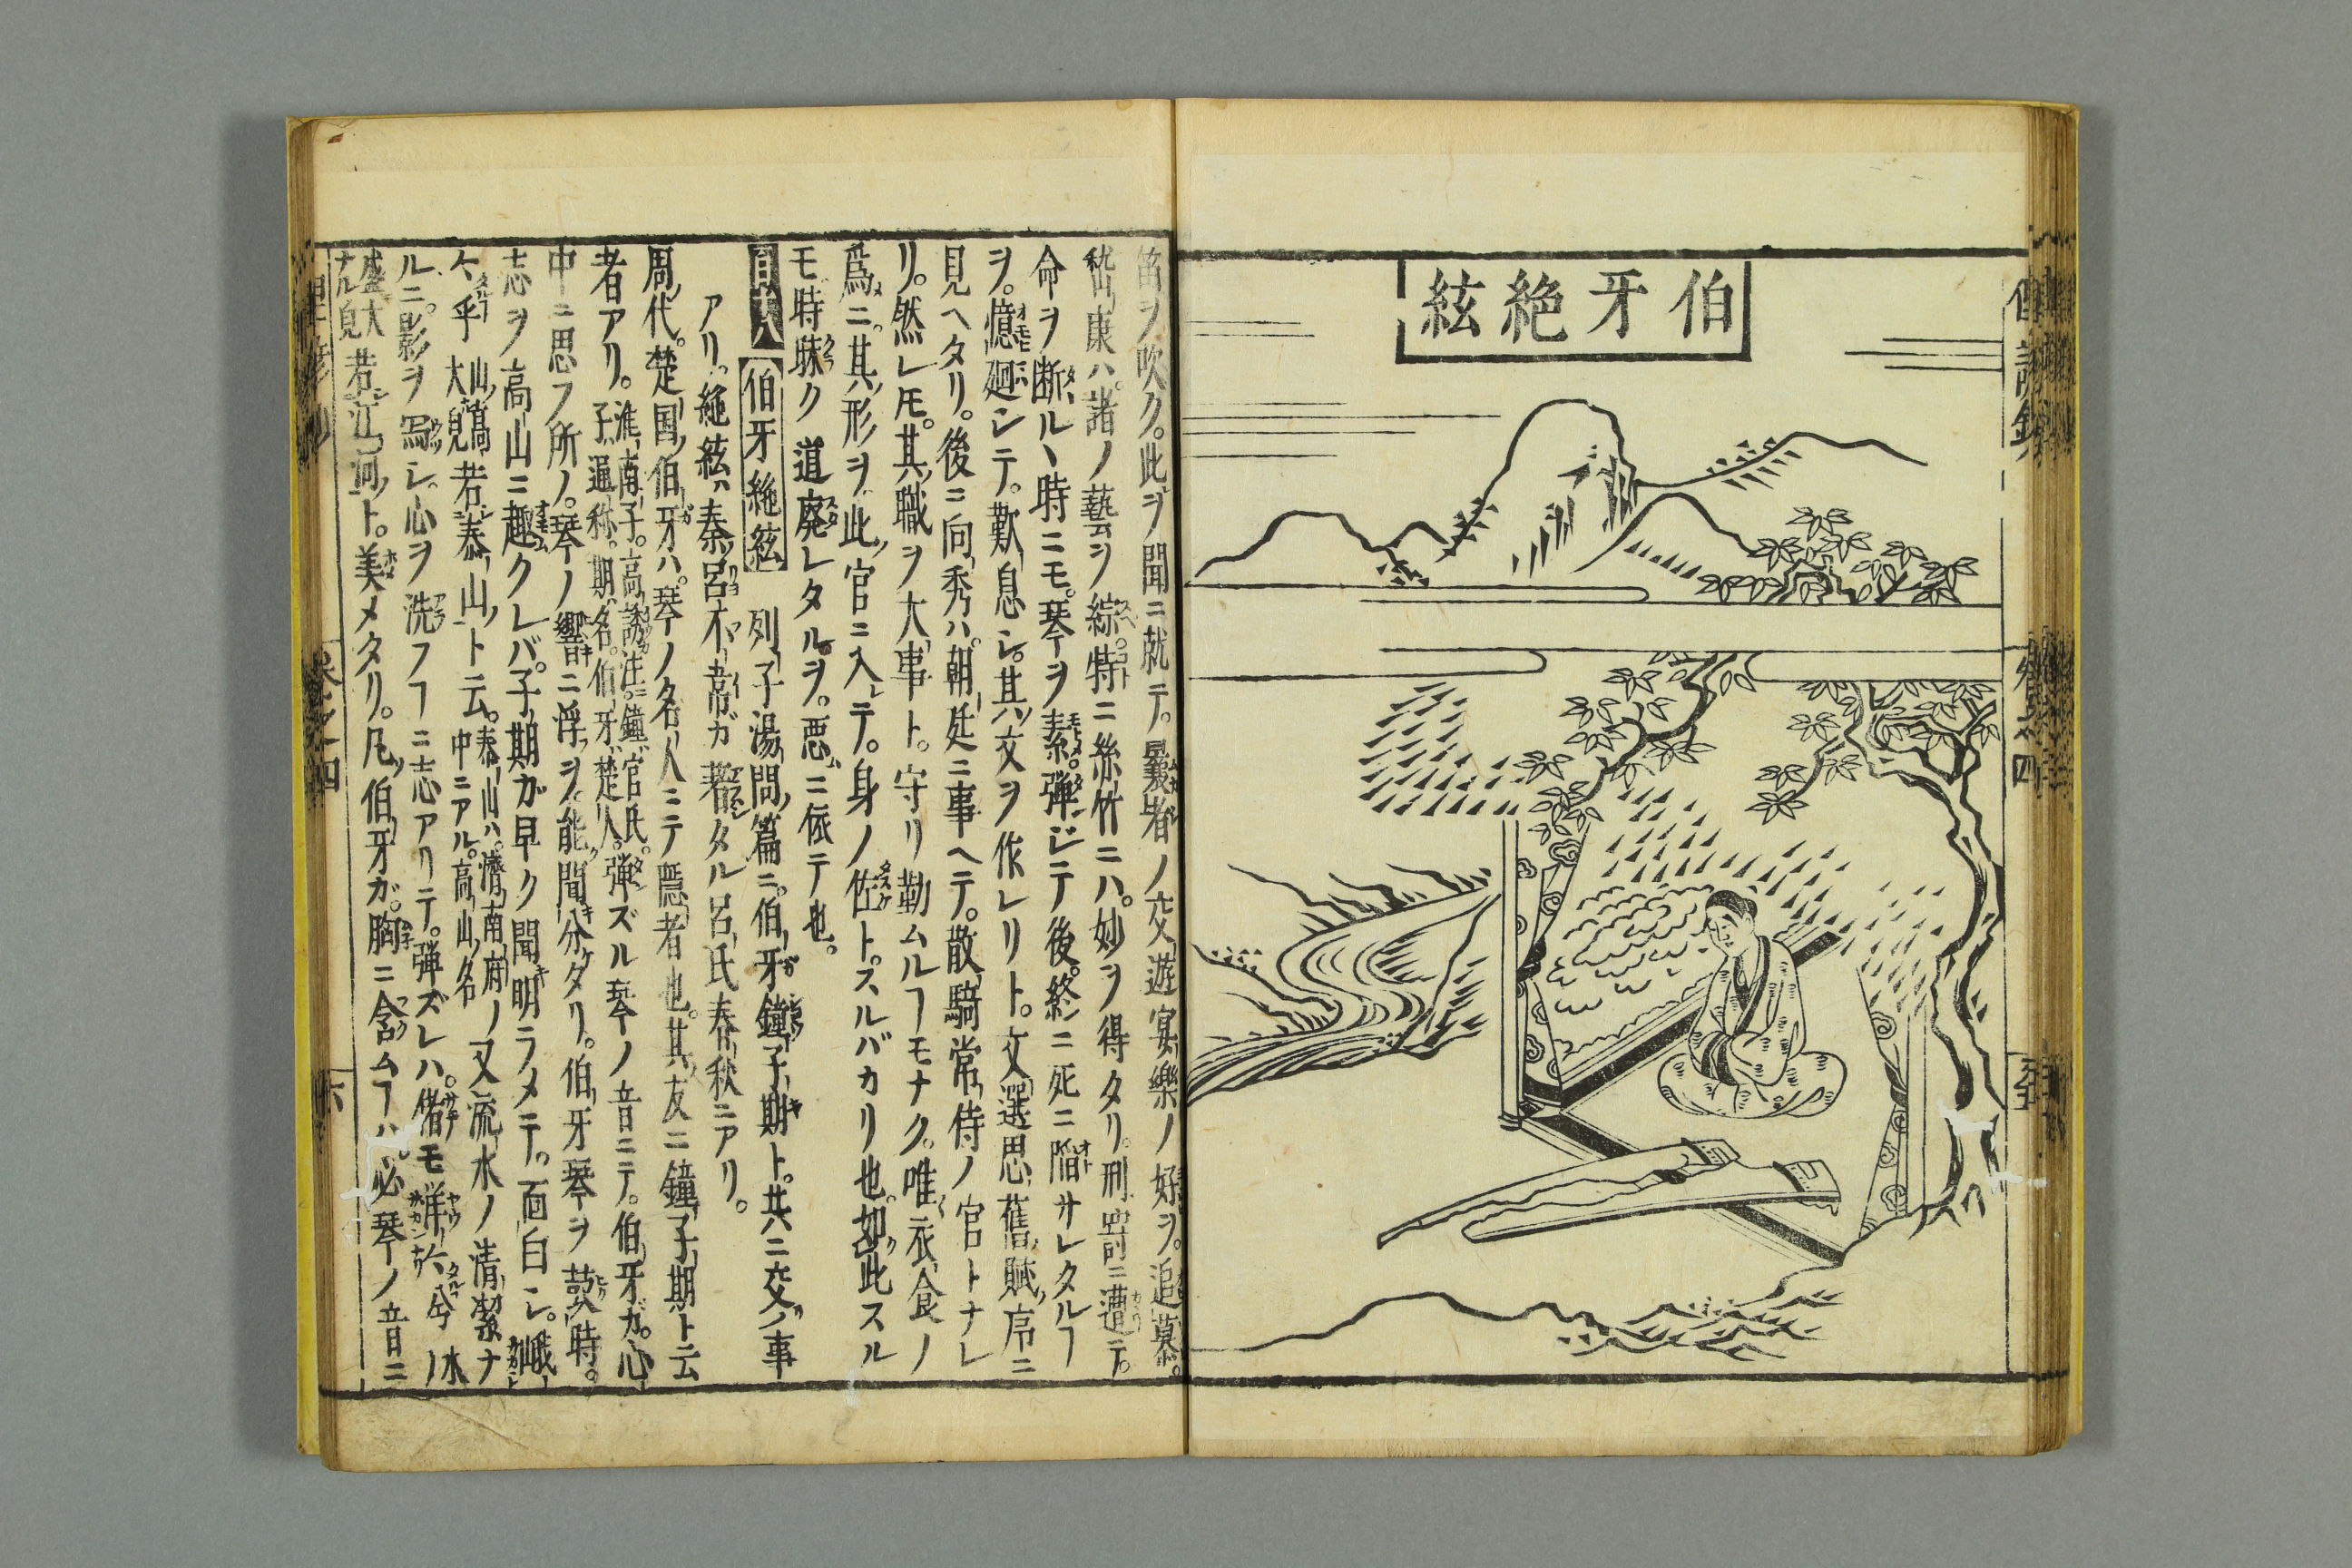 伯牙絶絃
卷之四
五
笛ヲ吹ク。此ヲ聞ニ就テ。曩者ノ交遊宴樂ノ好ヲ。追慕。
嵇康ハ。諸ノ藝ヲ綜。特ニ絲竹ニハ。妙ヲ得タリ。刑ニ遭テ。
命ヲ断ルヽ時ニモ。琴ヲ素。弾ジテ後。終ニ死ニ陷サレタルヿ
ヲ。憶廻シテ。歎息シ。其文ヲ作レリト。文選思舊賦序ニ
見ヘタリ。後ニ向秀ハ。朝廷ニ事ヘテ。散騎常侍ノ官トナレ
リ。然レ𪜈。其職ヲ大事ト。守リ勤ムルヿモナク。唯衣食ノ
爲ニ。其形ヲ此官ニ入テ。身ノ佐ト。スルバカリ也。如此スル
モ時昧ク道廢レタルヲ。悪ニ依テ也。
伯牙絶絃 列子湯問篇ニ。伯牙鐘子期ト。共ニ交ノ事
アリ。絶絃ハ秦呂不韋ガ著タル呂氏春秋ニアリ。
周代。楚国伯牙ハ。琴ノ名人ニテ隠者也。其友ニ鐘子期ト云
者アリ。淮南子。高誘注。鐘官氏。子通称。期名。伯牙楚人。弾ズル琴ノ音ニテ。伯牙ガ。心
中ニ思フ所ノ。琴ノ響ニ浮ヲ。能聞分タリ。伯牙琴ヲ鼓時。
志ヲ高山ニ趣クレバ。子期ガ早ク聞明ラメテ。面白シ。峨
乎大皃若泰山ト云。泰山ハ。濟南府ノ中ニアル。高山名又流水ノ清潔ナ
ルニ。影ヲ写シ。心ヲ洗フヿニ志アリテ。弾ズレハ。偖モ洋兮水ノ
盛大ナル皃若江河ト。美メタリ。凡伯牙ガ。胸ニ含ムヿハ。必琴ノ音ニ
卷之四
六